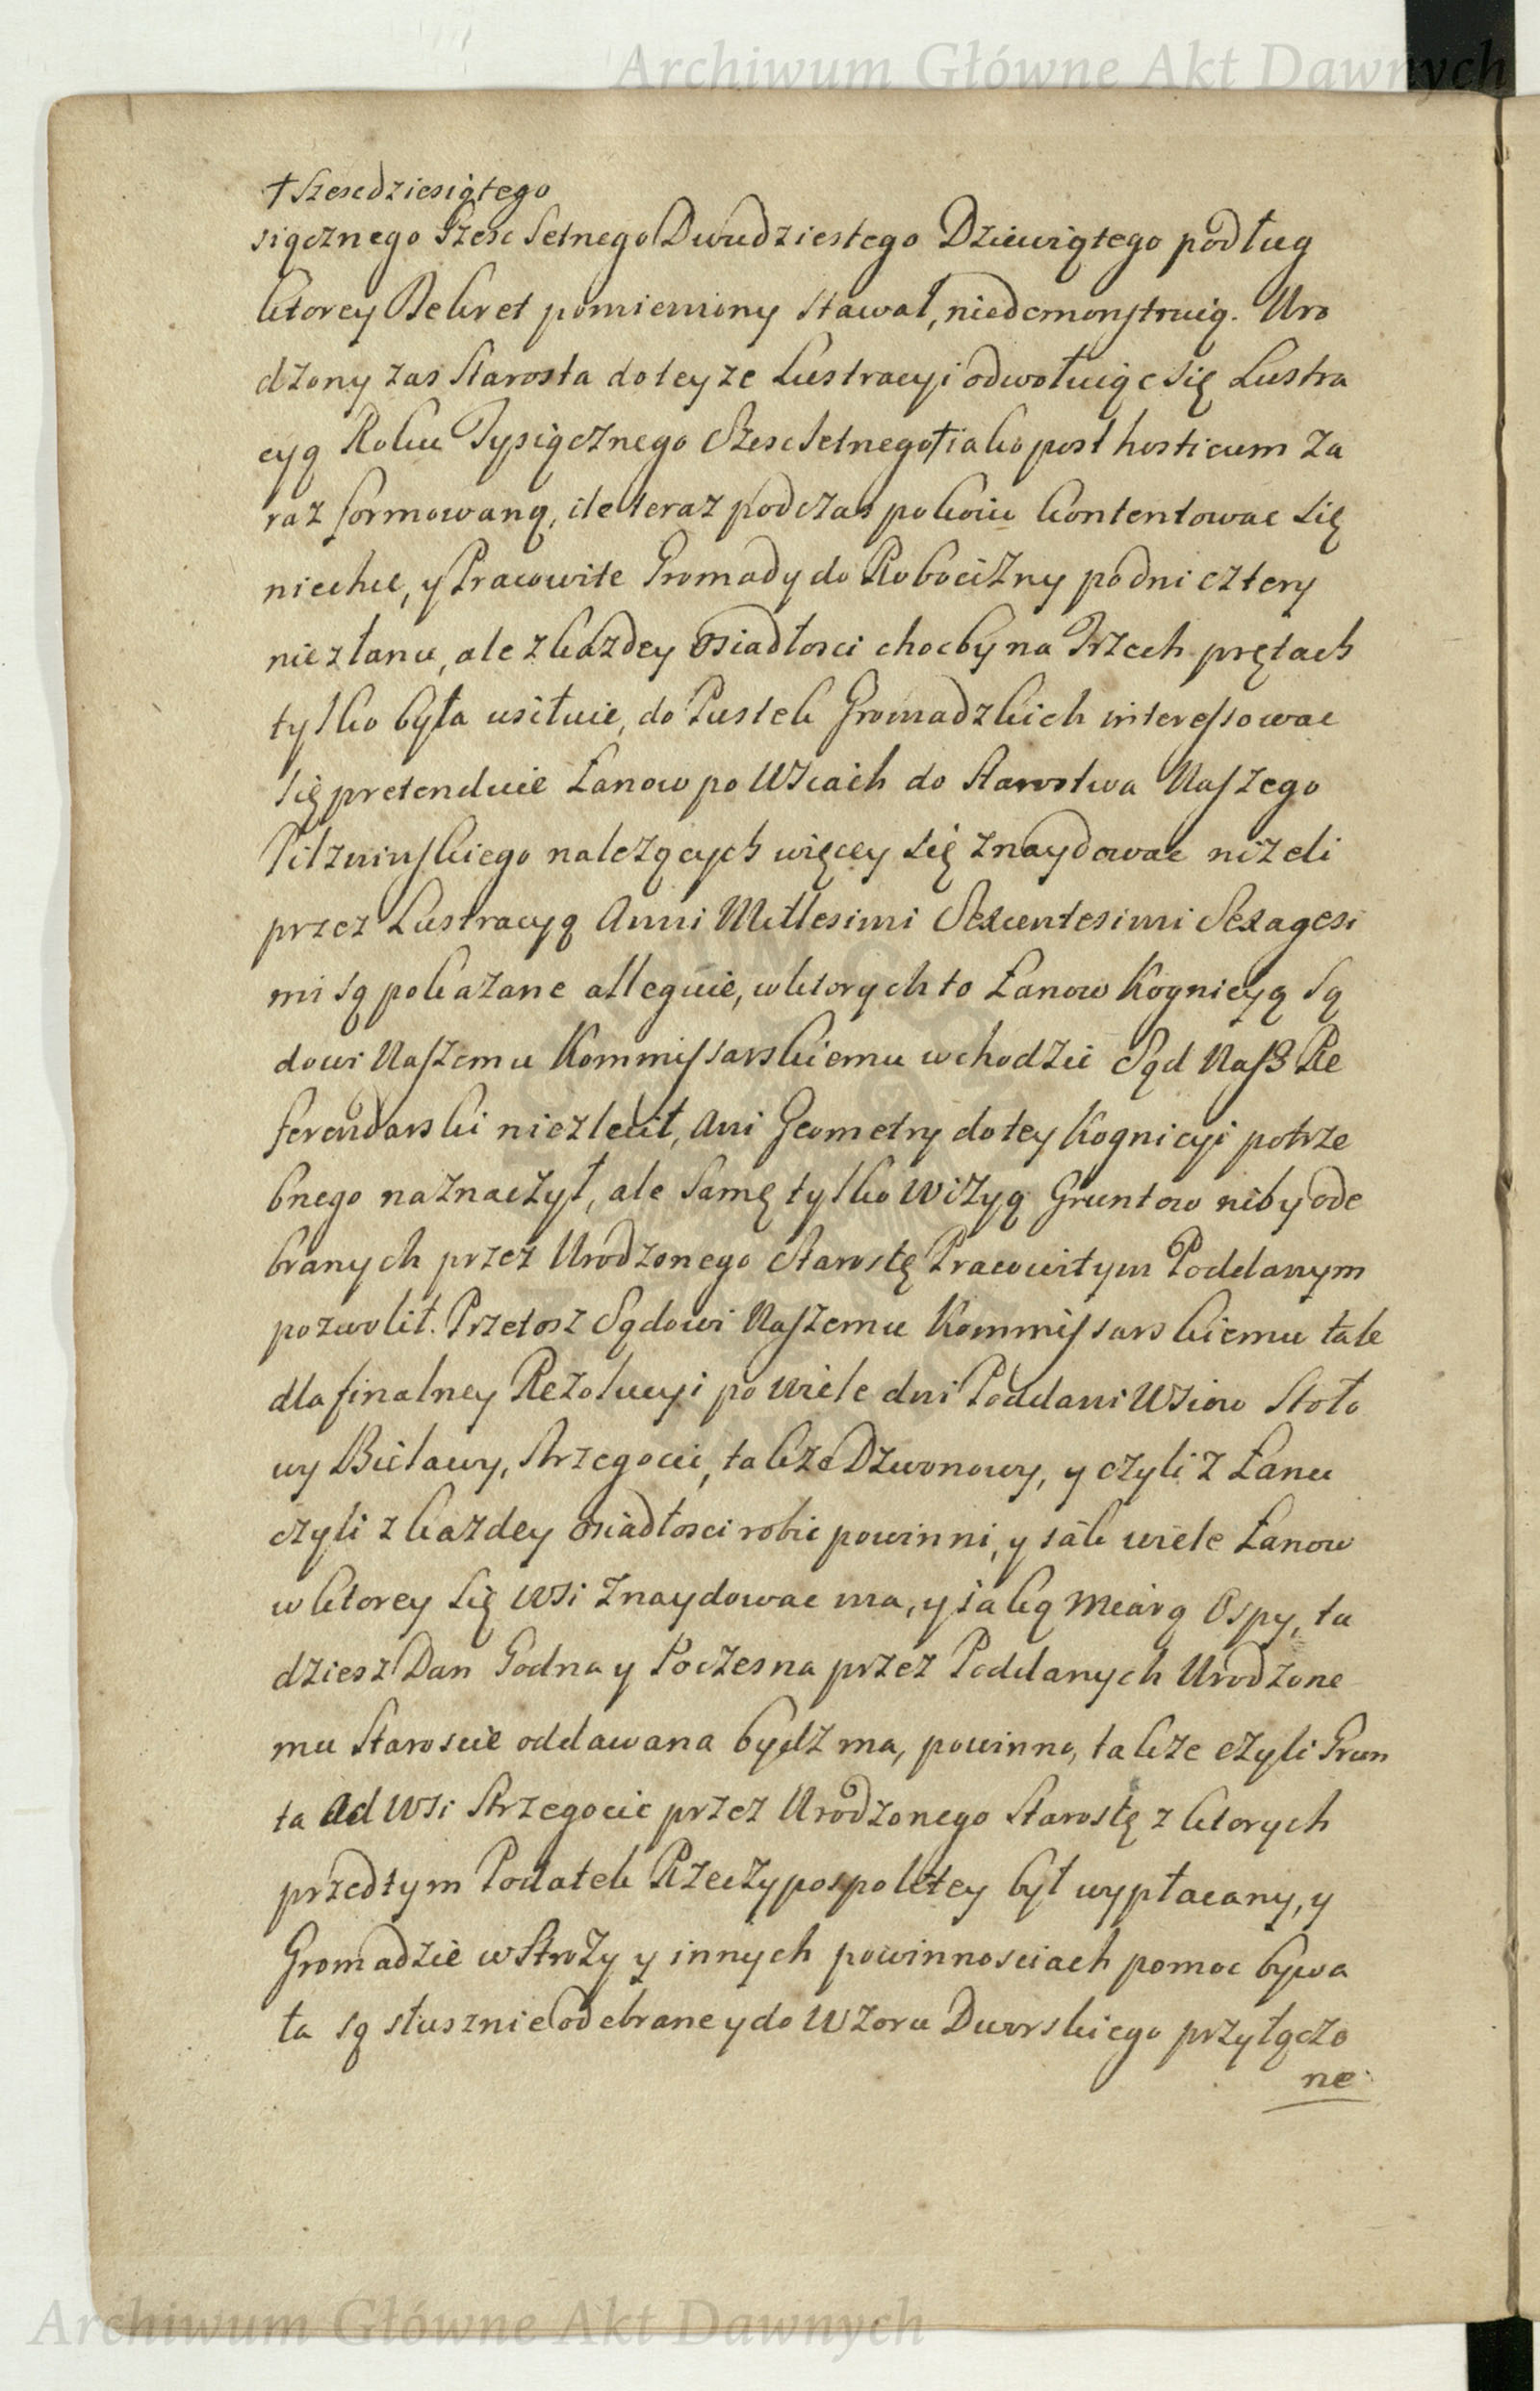 Archiwum Główne Akt Dawnych
† Szescdziesiątego
siącznego Szesc Setnego Dwudziestego Dziewiątego podług
ktorey Dekret pomieniony stawał, niedemonstruią. Uro
dzony zas Starosta do teyze Lustracyi odwołuiąc się Lustra
cyą Roku Tysiącznego Szesc Setnego † iako post hosticum za
raz formowaną, ile teraz podczas pokoiu kontentowac się
niechce, y Pracowite Gromady do Robocizny po dni cztery
nie z łanu, ale z kazdey osiadłosci chocby na Trzech prętach
tylko była usiłuie, do Pustek Gromadzkich interessowac
się pretenduie Łanow po Wsiach do Starostwa Naszego
Pilzninskiego nalezących więcey się znaydowac nizeli
przez Lustracyą Anni Millesimi Sexcentesimi Sexagesi
mi są pokazane alleguie, w ktorych to Łanow Kognicyą Są
dowi Naszemu Kommissarskiemu wchodzic Sąd Nasz Re
ferendarski niezlecił, ani Geometry do tey Kognicyi potrze
bnego naznaczył, ale samę tylko Wizyą Gruntow niby ode
branych przez Urodzonego Starostę Pracowitym Poddanym
pozwolił. Przetosz Sądowi Naszemu Kommissarskiemu tak
dla finalney Rezolucyi po wiele dni Poddani Wsiow Stoło
wy Bielawy, Strzegocic, takze Dzwonowy, y czyli z Łanu
czyli z kazdey osiadłosci robic powinni, y iak wiele Łanow
w ktorey się wsi znaydowac ma, y iaką miarą Ospy, tu
dziesz Dan Godna y Poczesna przez Poddanych Urodzone
mu Staroscie oddawana bydz ma, powinna, takze czyli Grun
ta Ad Wsi Strzegocic przez Urodzonego Starostę z ktorych
przedtym Podatek Rzeczypospolitey był wypłacany, y
Gromadzie w Strozy y innych powinnosciach pomoc bywa
ła są słusznie odebrane y do Wzoru Dworskiego przyłączo
ne
Archiwum Główne Akt Dawnych